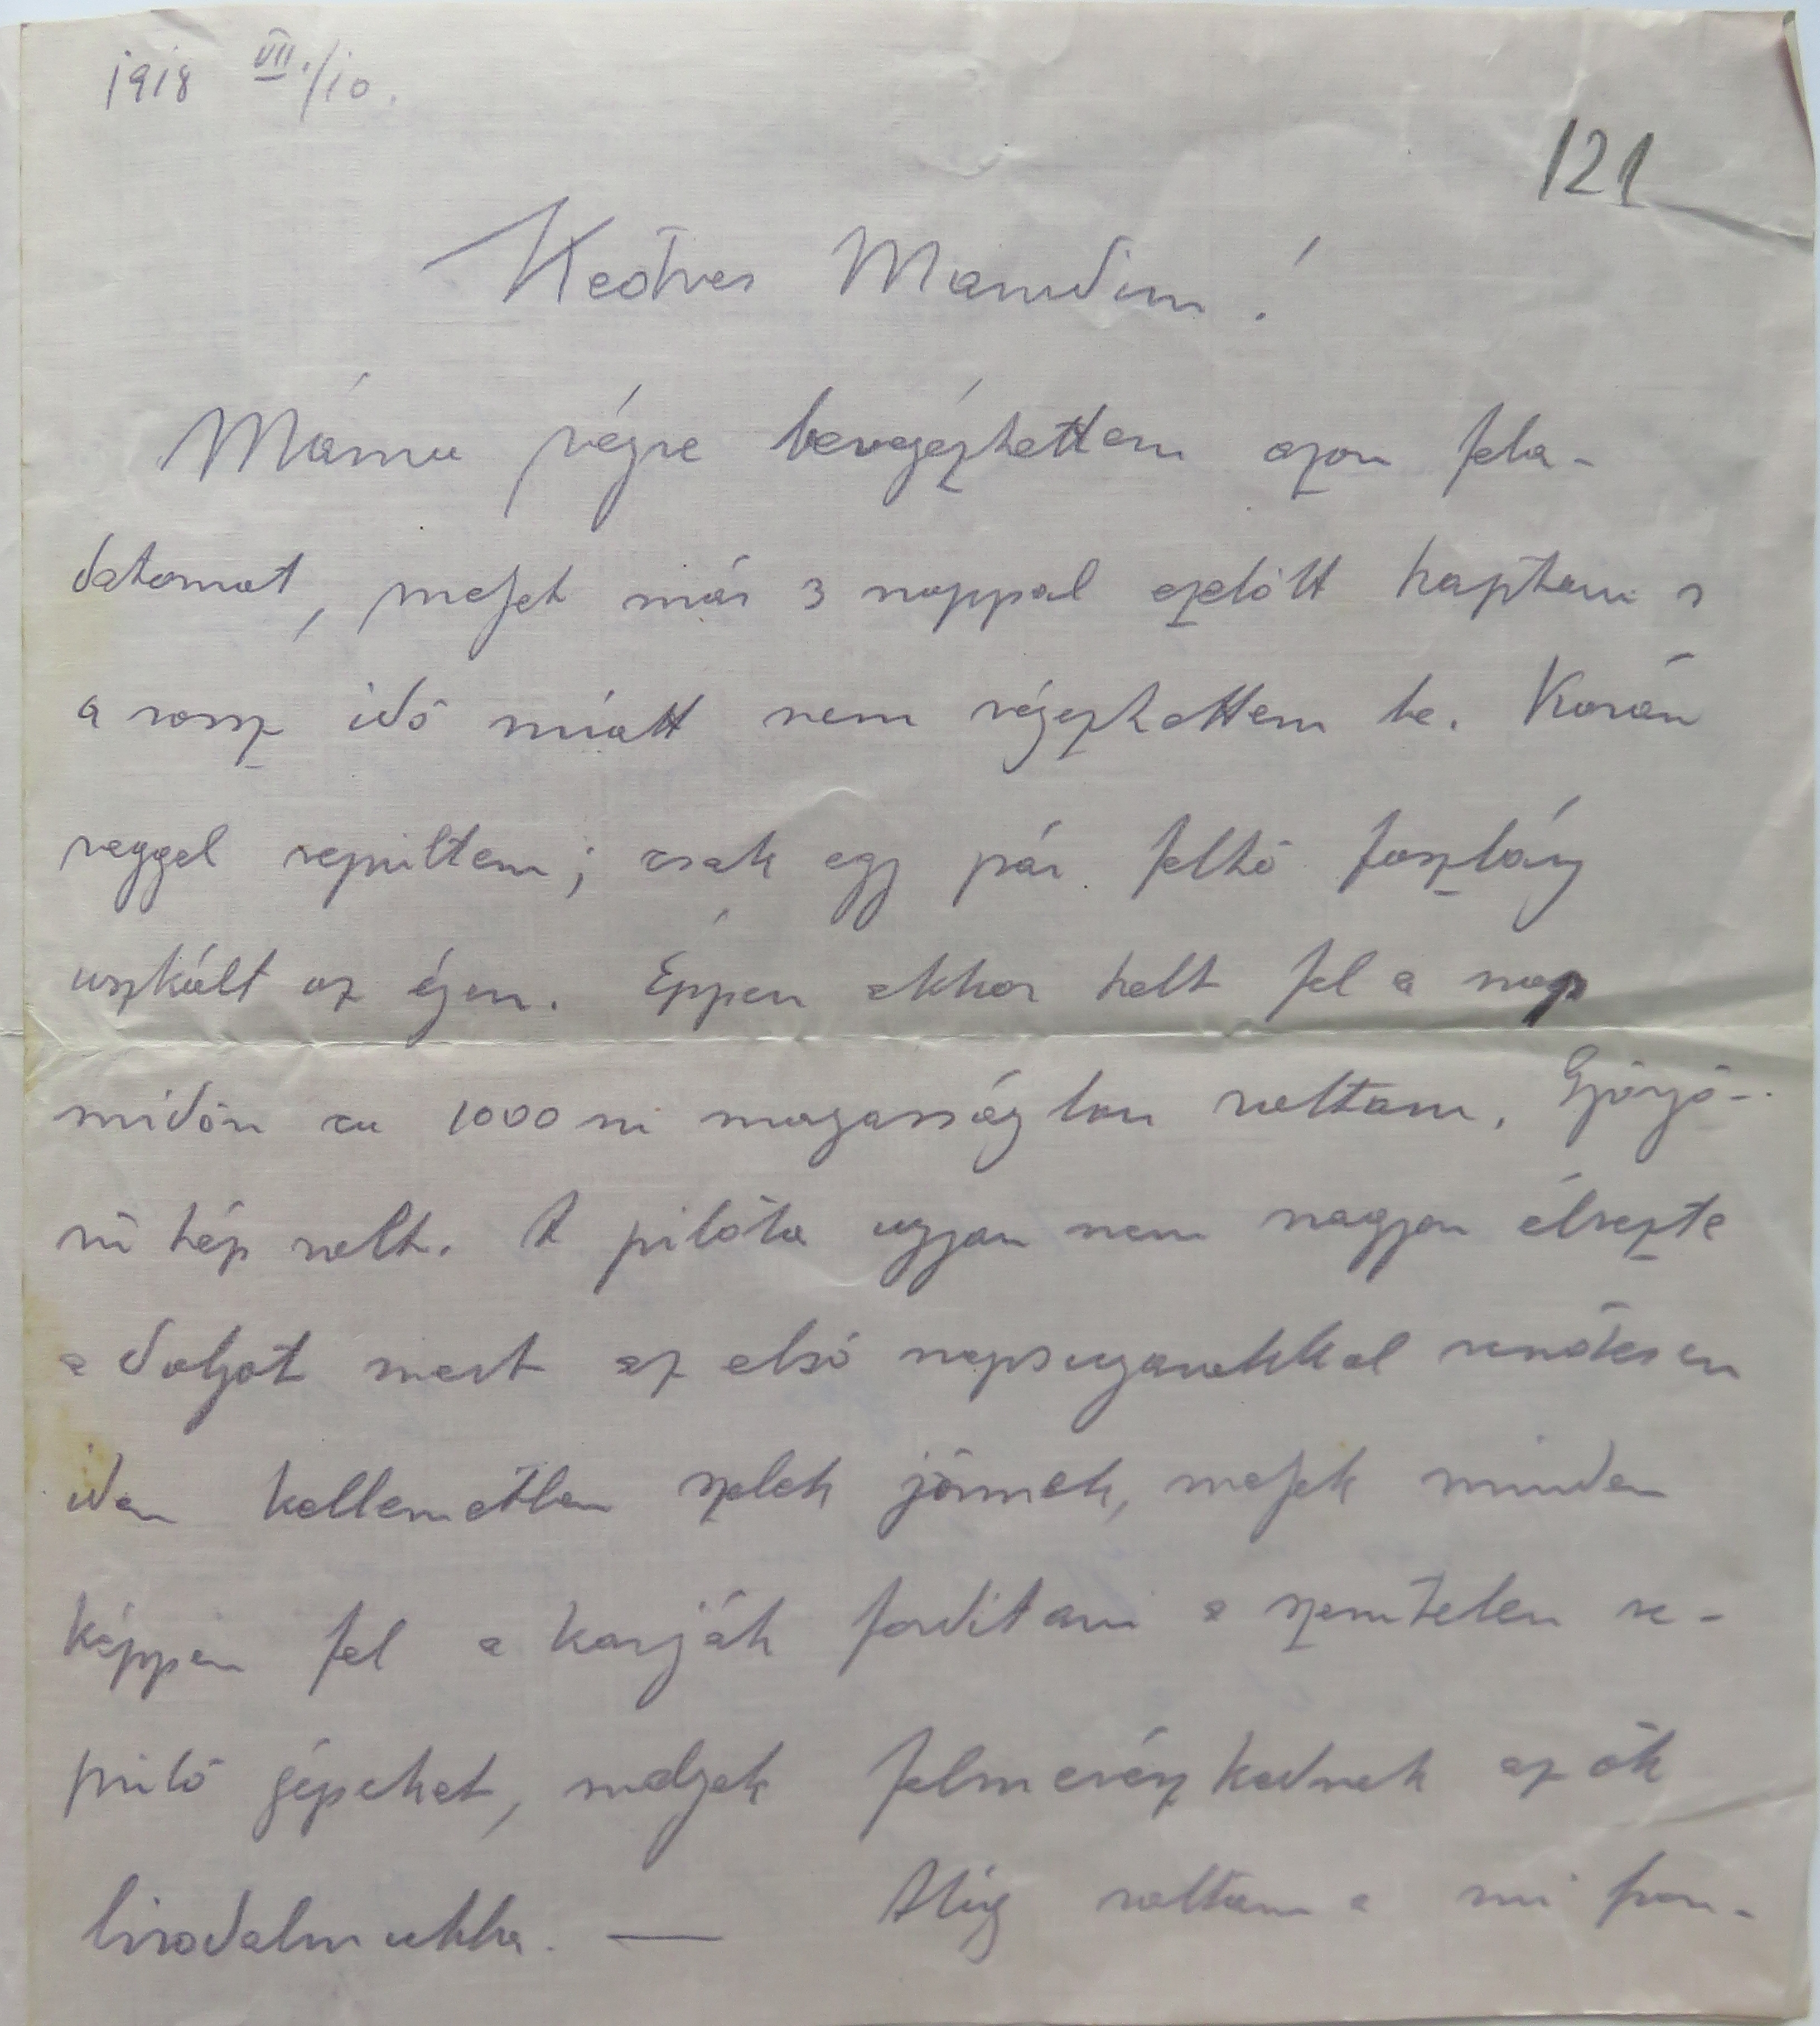 1918 VII./10.
121
Kedves Mamdim!
Máma végre bevegézhettem azon fela-
datomat, melyet már 3 nappal ezelőtt kaptam s
a rossz idő miatt nem végezhettem be. Korán
reggel repültem; csak egy pár felhő foszlány
uszkált az égen. Éppen akkor kelt fel a nap
midőn ca 1000 m magasságban voltam. Gyönyö-
rű kép volt. A pilóta ugyan nem nagyon élvezte
a dolgot mert az első napsugarakkal rendesen
kellemetlen szelek jönnek, melyek minden
képpen fel akarják fordítani a szemtelen re-
pülő gépeket, melyek felmerészkednek az ők
birodalmukba. — Alig voltam a mi fron-